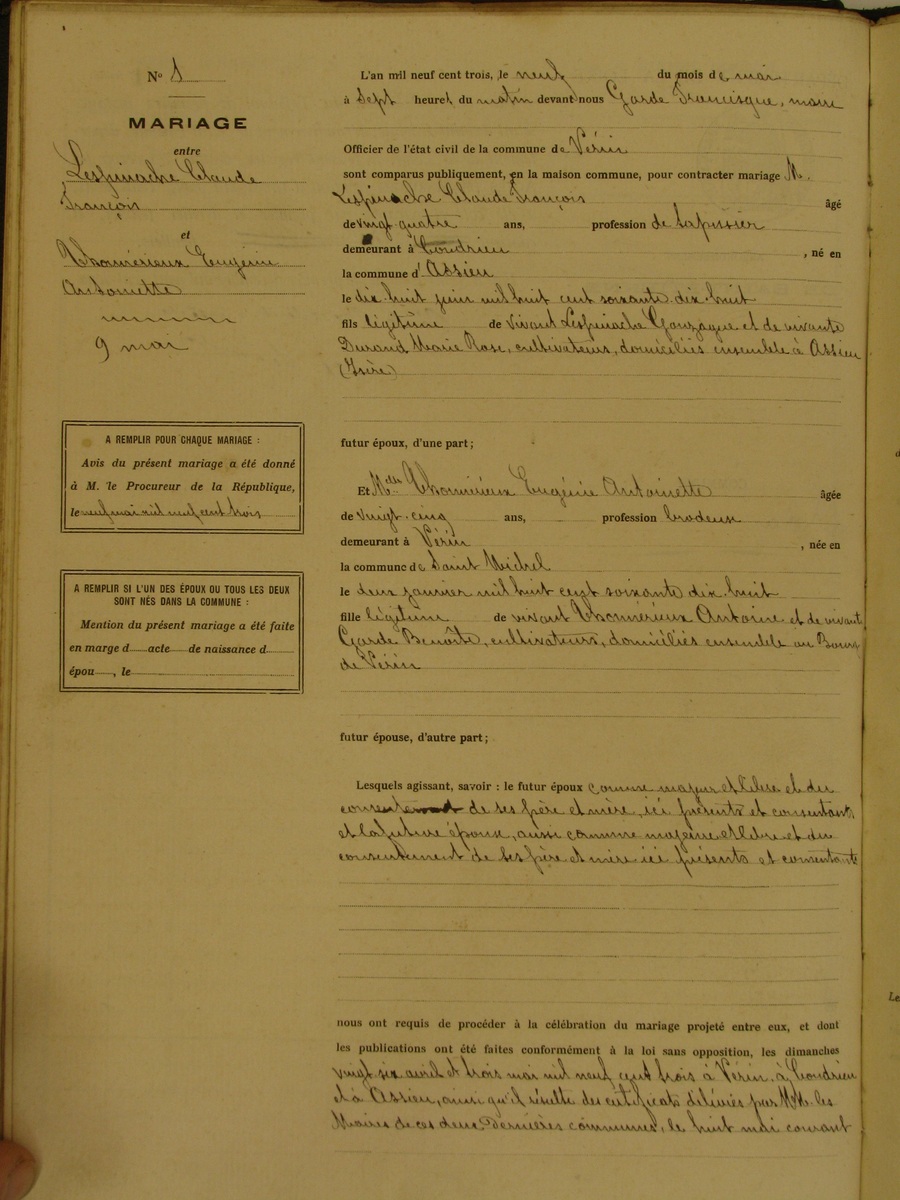 No
MARIAGE
entre
Lespinache Claude
François
et
Thomérieux Eugénie
Antoinette
9 mai
A REMPLIR POUR CHAQUE MARIAGE :
Avis du présent mariage a été donné
à M. le Procureur de la République,
le neuf mai mil neuf cent trois
A REMPLIR SI L'UN DES ÉPOUX OU TOUS LES DEUX
SONT NÉS DANS LA COMMUNE :
Mention du présent mariage a été faite
en marge d acte de naissance d
épou , le
L'an mil neuf cent trois, le neuf du mois de mai
à Sept heures du matin devant nous Garde Francisque, maire
Officier de l'état civil de la commune de Vérin
sont comparus publiquement, en la maison commune, pour contracter mariage M.
Lespinache Claude François âgé
de vingt quatre ans, profession de tapissier
demeurant à Condrieu , né en
la commune d'Assieu
le dix huit juin mil huit cent soixante dix huit
fils légitime de vivant Lespinache Gonzague et de vivante
Durand Marie Rose, cultivateurs, domiciliés ensemble à Assieu
(Isère)
futur époux, d'une part ;
Et Melle Thomérieux Eugénie Antoinette âgée
de vingt-cinq ans, profession brodeuse
demeurant à Vérin , née en
la commune de Saint Michel
le deux janvier mil huit cent soixante dix huit
fille légitime de vivant Thomérieux Antoine et de vivante
Garde Benoîte, cultivateurs, domiciliés ensemble au Bourg
de Vérin
futur épouse, d'autre part ;
Lesquels agissant, savoir : le futur époux comme majeur et libre et du
de ses père et mère, ici présents et consentants
et la future épouse, aussi comme majeure et libre et du
consentement de ses père et mère ici présents et consentants
nous ont requis de procéder à la célébration du mariage projeté entre eux, et dont
les publications ont été faites conformément à la loi sans opposition, les dimanches
vingt six avril et trois mai mil neuf cent trois à Vérin, à Condrieu
et à Assieu, ainsi qu'il résulte des certificats délivrés par MM. les
Maires de ces deux dernières communes, le huit mai courant